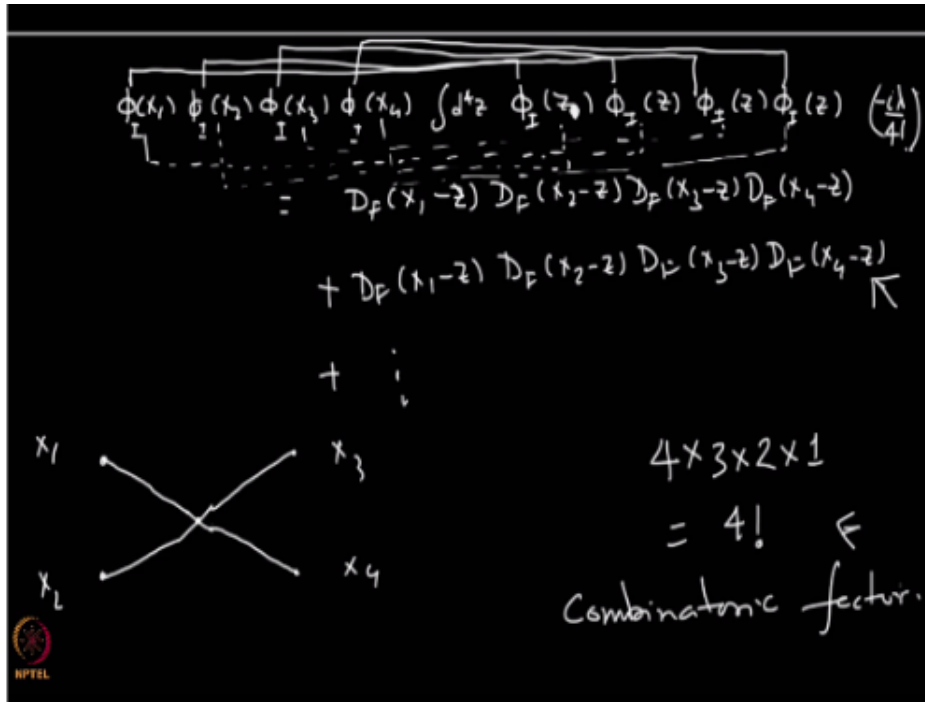 ϕ_I(x₁) ϕ_I(x₂) ϕ_I(x₃) ϕ_I(x₄) ∫d⁴z ϕ_I(z) ϕ_I(z) ϕ_I(z) ϕ_I(z) (-iλ/4!)
= D_F(x₁-z) D_F(x₂-z) D_F(x₃-z) D_F(x₄-z)
+ D_F(x₁-z) D_F(x₂-z) D_F(x₃-z) D_F(x₄-z)
+ ⋮
x₁ x₃
4×3×2×1
= 4!
x₂ x₄
Combinatoric fector.
NPTEL